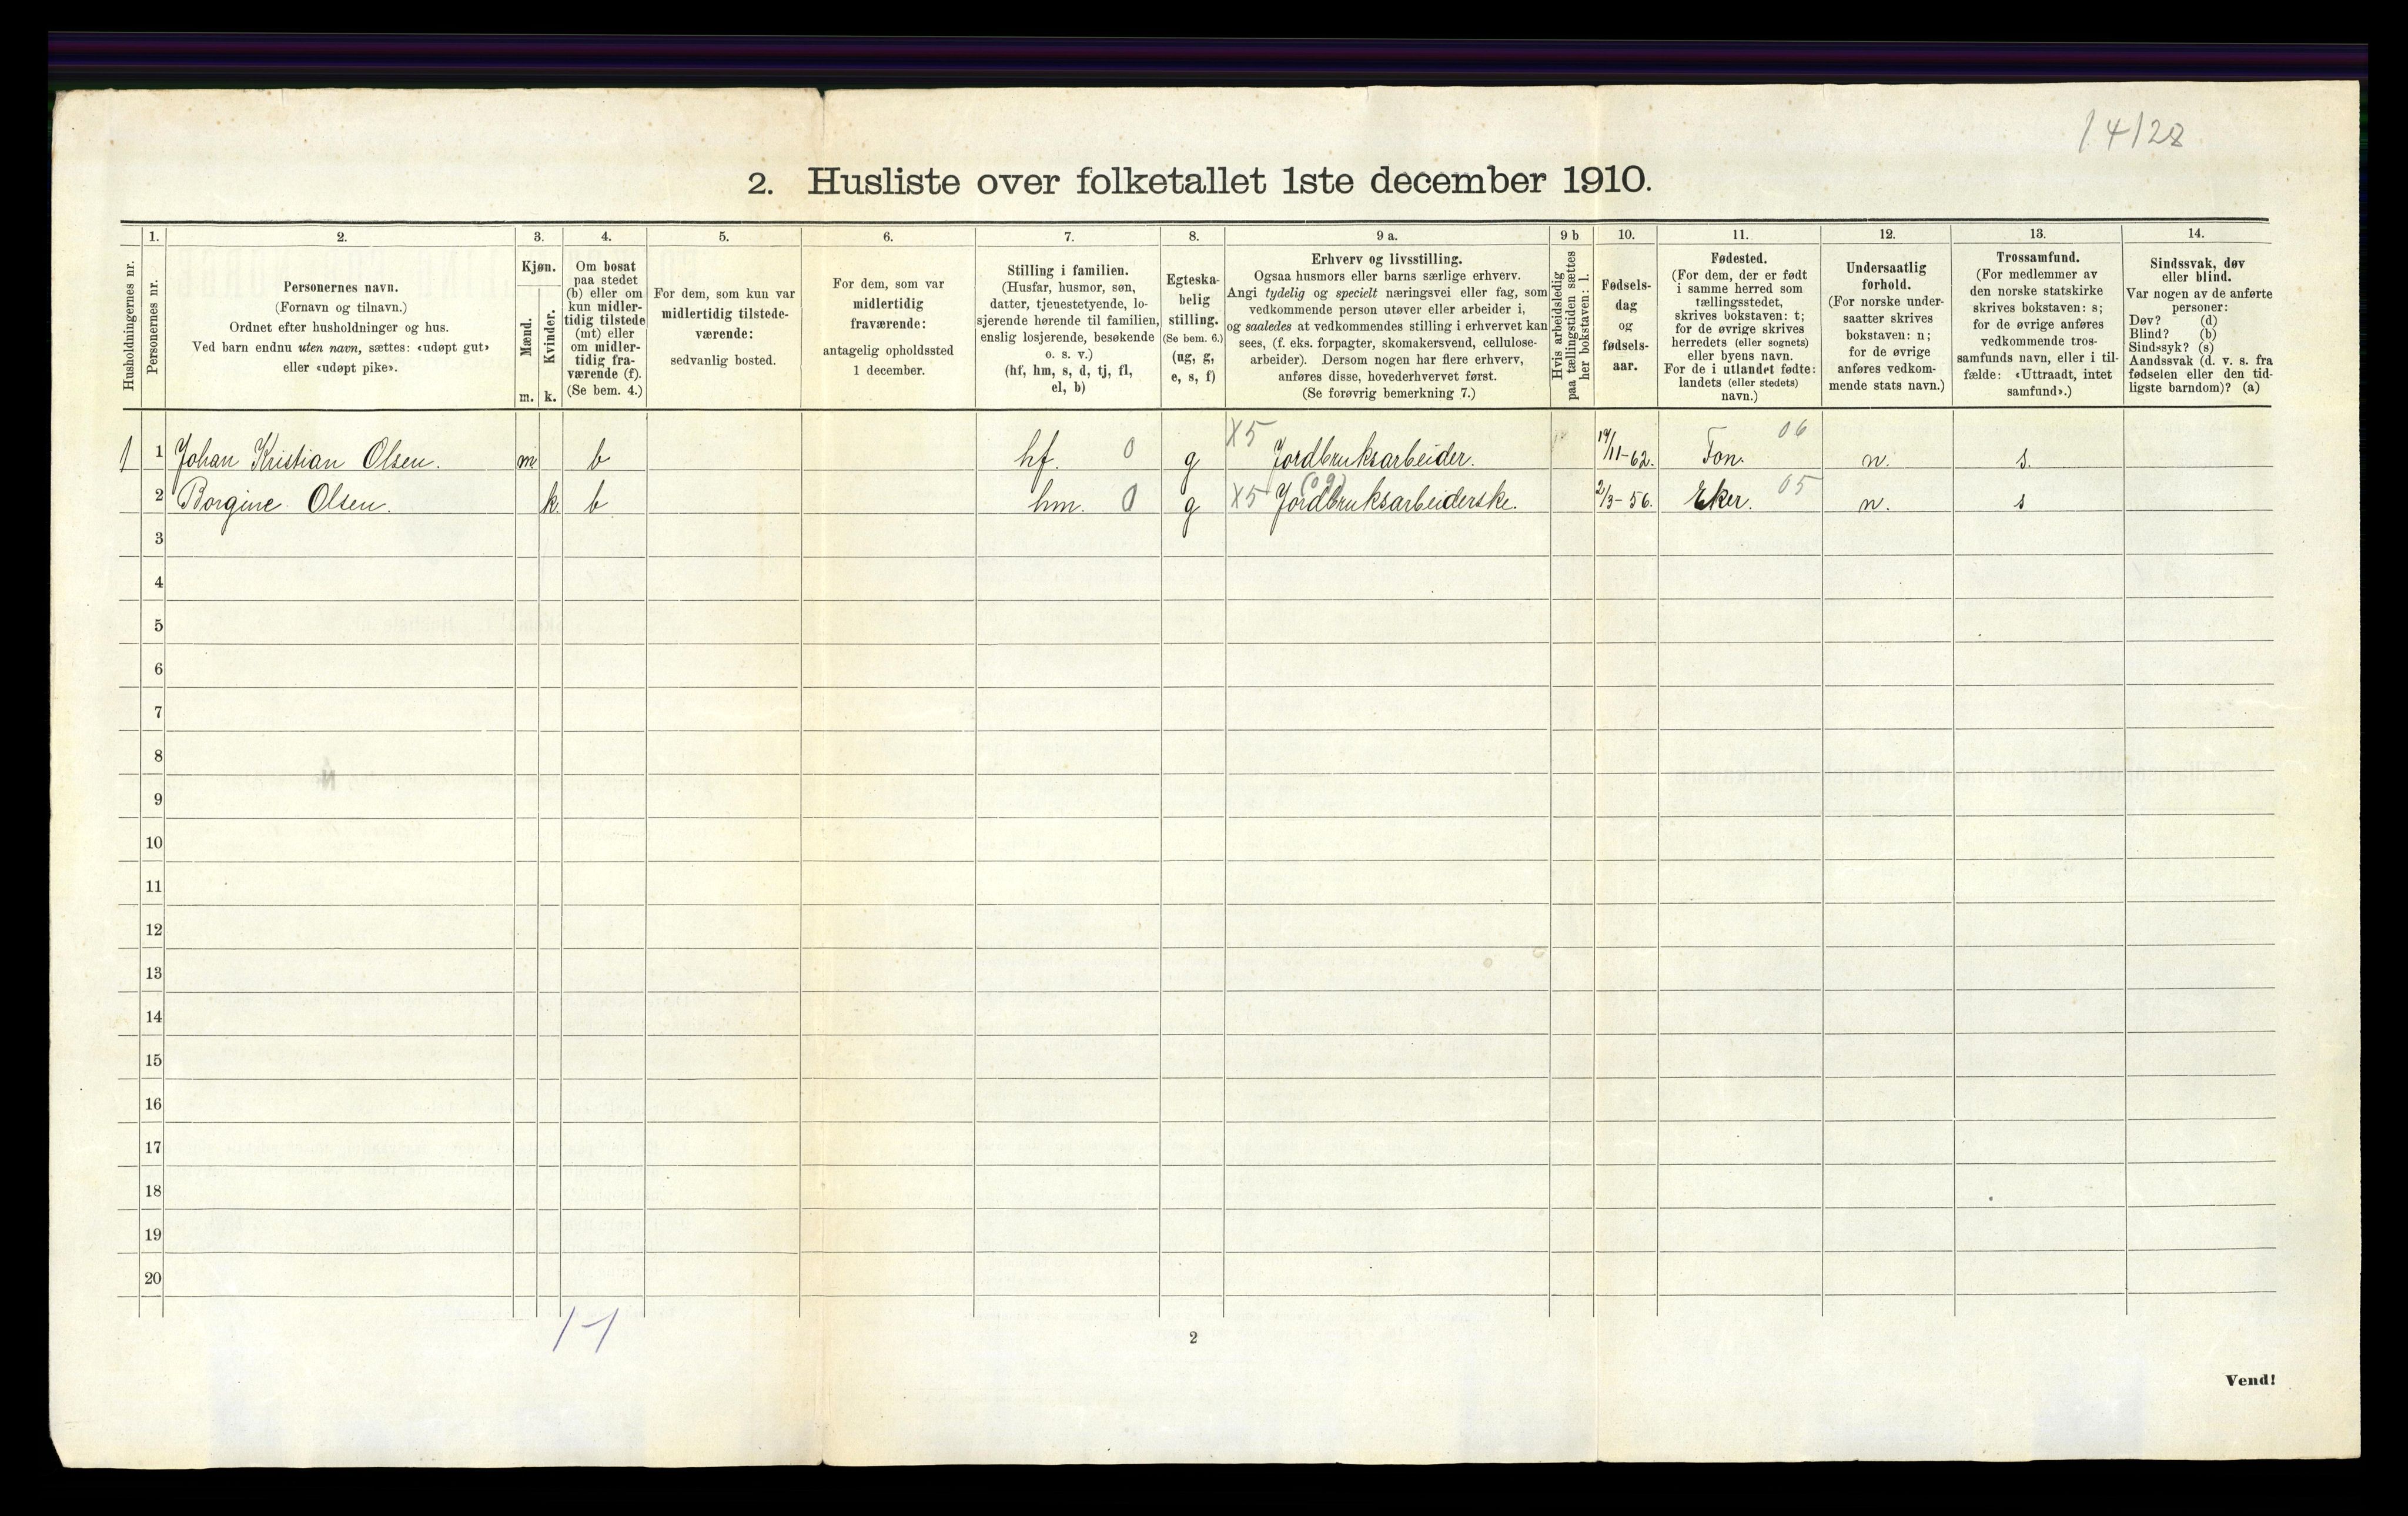 14128
2. Husliste over folketallet 1ste december 1910.
Husholdningernes nr.
1.
Personernes nr.
2.
Personernes navn.
(Fornavn og tilnavn.)
Ordnet efter husholdninger og hus.
Ved barn endnu uten navn, sættes: «udøpt gut»
eller «udøpt pike».
3.
Kjøn.
Mænd.
Kvinder.
m. k.
4.
Om bosat
paa stedet
(b) eller om
kun midler-
tidig tilstede
(mt) eller
om midler-
tidig fra-
værende (f).
(Se bem. 4.)
5.
For dem, som kun var
midlertidig tilstede-
værende:
sedvanlig bosted.
6.
For dem, som var
midlertidig
fraværende:
antagelig opholdssted
1 december.
7.
Stilling i familien.
(Husfar, husmor, søn,
datter, tjenestetyende, lo-
sjerende hørende til familien,
enslig losjerende, besøkende
o. s. v.)
(hf, hm, s, d, tj, fl,
el, b)
8.
Egteska-
belig
stilling.
(Se bem. 6.)
(ug, g,
e, s, f)
9 a.
Erhverv og livsstilling.
Ogsaa husmors eller barns særlige erhverv.
Angi tydelig og specielt næringsvei eller fag, som
vedkommende person utøver eller arbeider i,
og saaledes at vedkommendes stilling i erhvervet kan
sees, (f. eks. forpagter, skomakersvend, cellulose-
arbeider). Dersom nogen har flere erhverv,
anføres disse, hovederhvervet først.
(Se forøvrig bemerkning 7.)
9 b
Hvis arbeidsledig
paa tællingstiden sættes
her bokstaven: l.
10.
Fødsels-
dag
og
fødsels-
aar.
11.
Fødested.
(For dem, der er født
i samme herred som
tællingsstedet,
skrives bokstaven: t;
for de øvrige skrives
herredets (eller sognets)
eller byens navn.
For de i utlandet fødte:
landets (eller stedets)
navn.)
12.
Undersaatlig
forhold.
(For norske under-
saatter skrives
bokstaven: n;
for de øvrige
anføres vedkom-
mende stats navn.)
13.
Trossamfund.
(For medlemmer av
den norske statskirke
skrives bokstaven: s;
for de øvrige anføres
vedkommende tros-
samfunds navn, eller i til-
fælde: «Uttraadt, intet
samfund».)
14.
Sindssvak, døv
eller blind.
Var nogen av de anførte
personer:
Døv? (d)
Blind? (b)
Sindssyk? (s)
Aandssvak (d. v. s. fra
fødselen eller den tid-
ligste barndom)? (a)
1 1 Johan Kristian Olsen. m b hf. 0 g X5 Jordbruksarbeider. 14/11-62. Fon. 06 n. s.
2 Borgine Olsen. k. b hm. 0 g X5 Jordbruksarbeiderske. 2/3-56. Eker. 05 n. s
3
4
5
6
7
8
9
10
11
12
13
14
15
16
17
18
19
20
1-1
2
Vend!